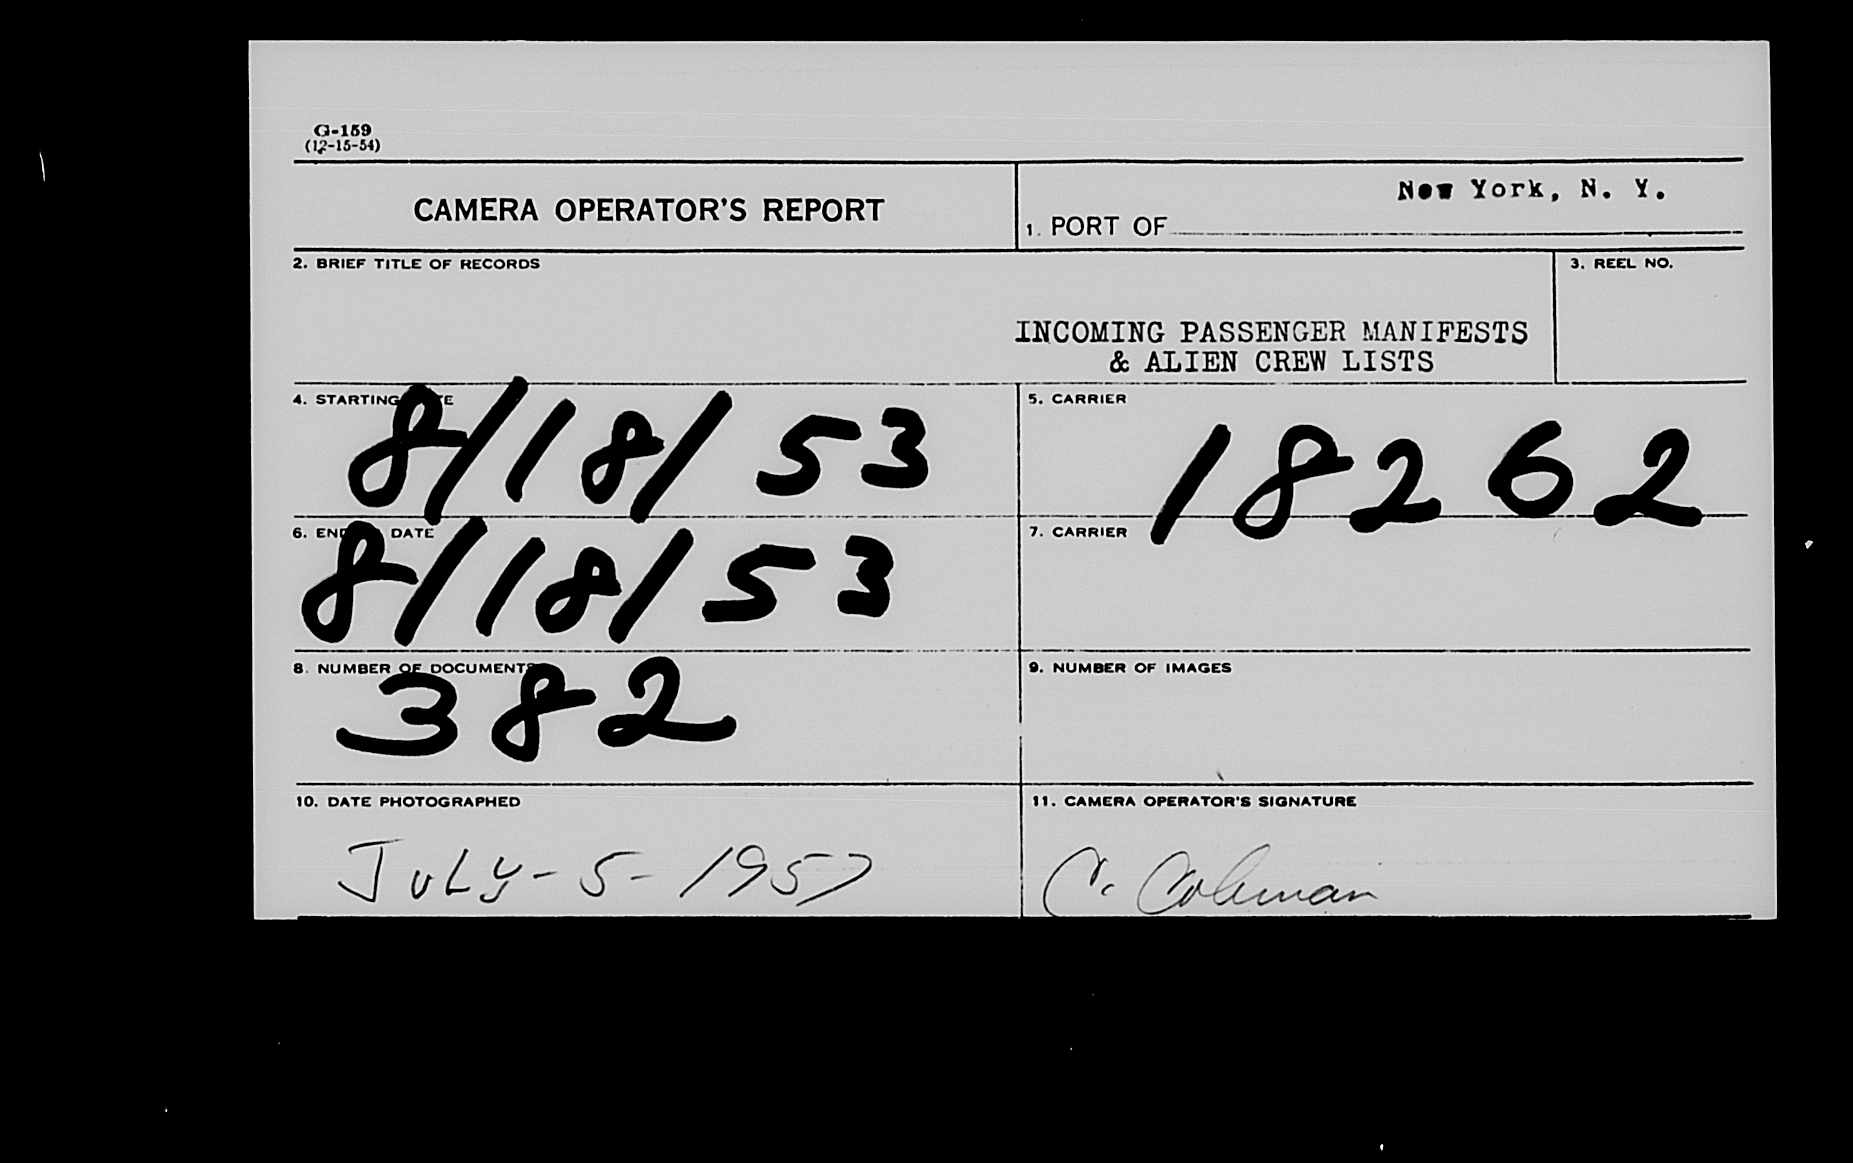 G-159
(12-15-54)
CAMERA OPERATOR'S REPORT
New York, N. Y.
1. PORT OF
2. BRIEF TITLE OF RECORDS
3. REEL NO.
INCOMING PASSENGER MANIFESTS
& ALIEN CREW LISTS
4. STARTING DATE
8/18/53
5. CARRIER
18262
6. ENDING DATE
8/18/53
7. CARRIER
8. NUMBER OF DOCUMENTS
382
9. NUMBER OF IMAGES
10. DATE PHOTOGRAPHED
JuLy-5-1957
11. CAMERA OPERATOR'S SIGNATURE
C. Coleman